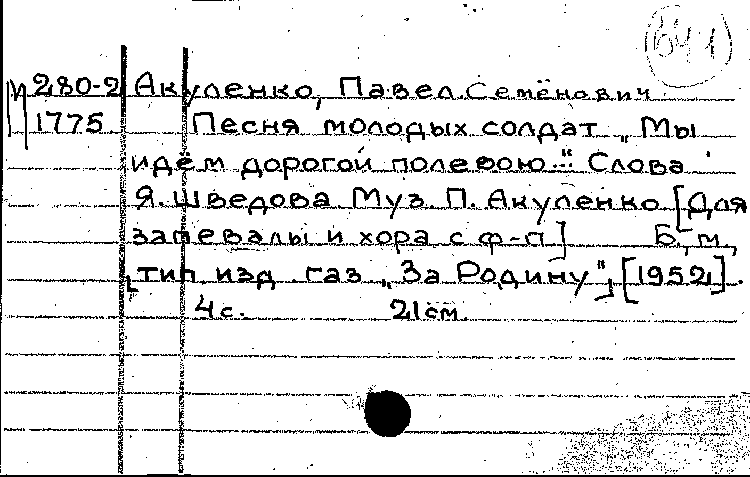 БЧ1
М 280-2 Акуленко, Павел Семёнович
1775 Песня молодых солдат „Мы
идём дорогой полевою..." Слова
Я. Шведова Муз. П. Акуленко [Для
запевалы и хора с ф-п] Б. м.,
[тип изд газ „За Родину"], [1952].
4 с. 21 см.